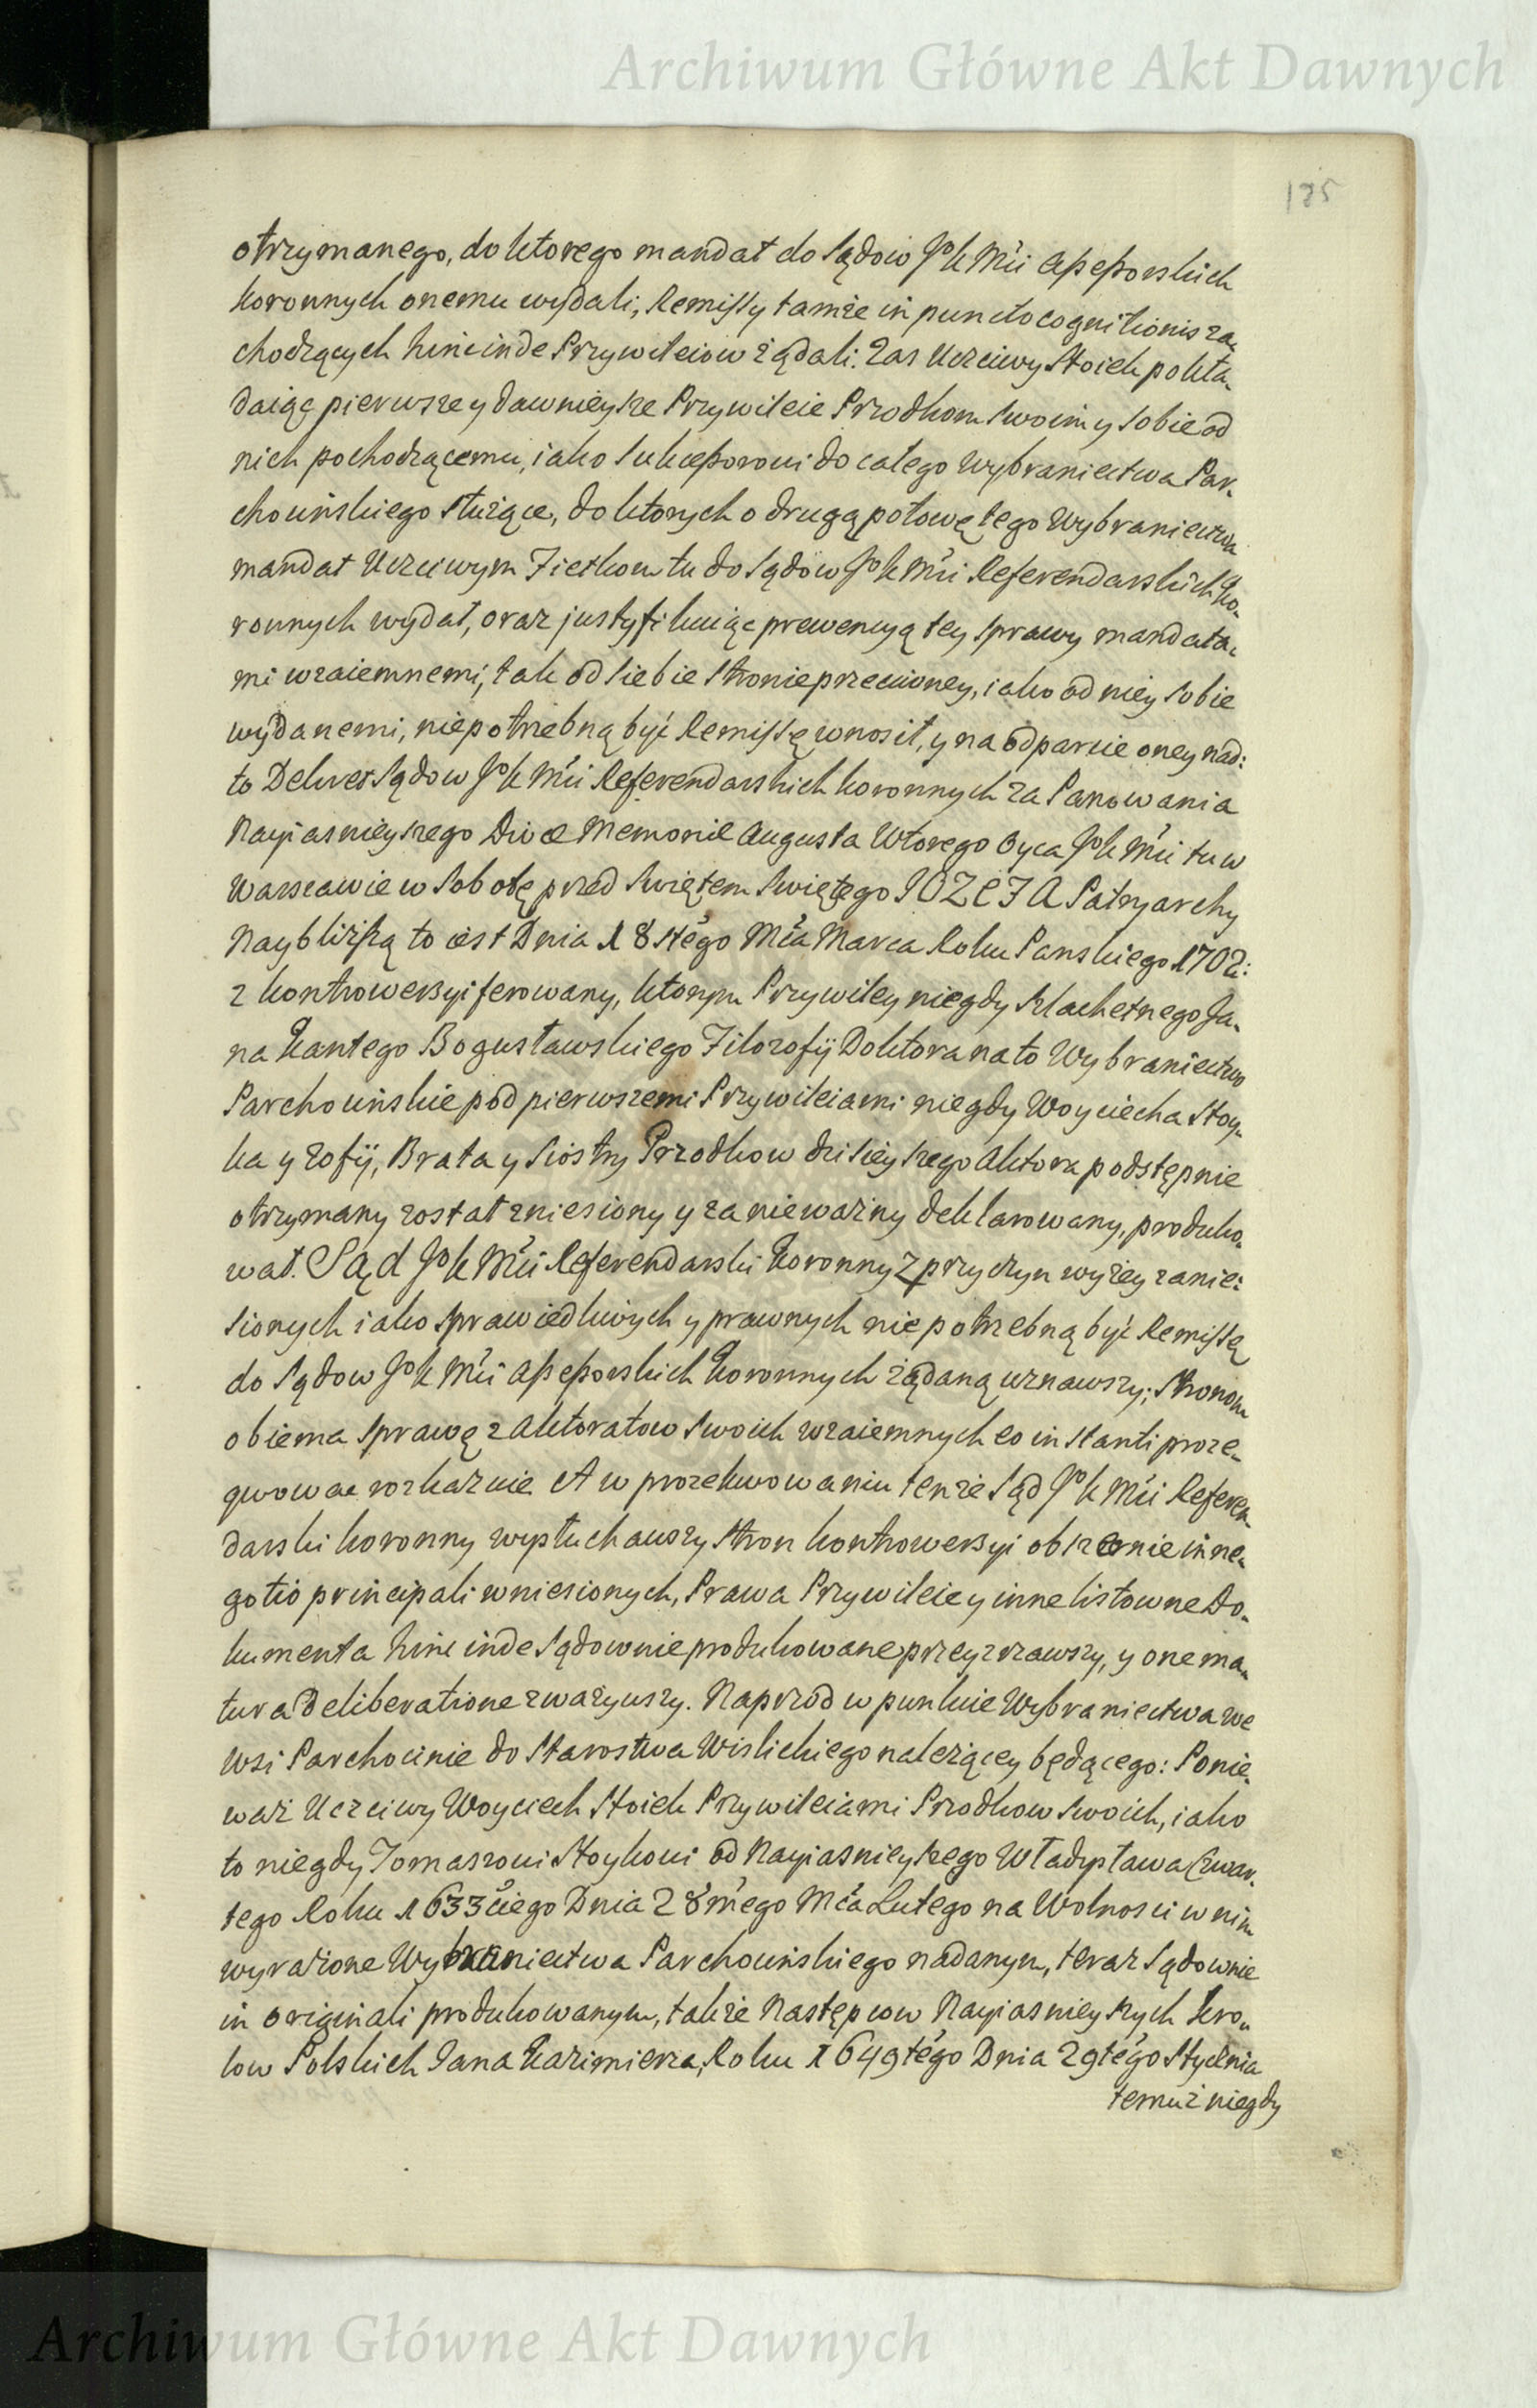 Archiwum Główne Akt Dawnych
185
otrzymanego, do ktorego mandat do Sądow JoK Mci Assessorskich
Koronnych onemu wydali, Remissy tamże in puncto cognitionis za„
chodzących hinc inde Przywileiow żądali. Zas Uczciwy Stoiek pokła„
daiąc pierwsze y dawnieysze Przywileie Przodkom Swoim y Sobie od
nich pochodzącemu, iako Sukcessorowi do całego Wybraniectwa Par„
chocinskiego służące, do ktorych o drugą połowę tego Wybraniectwa
mandat Uczciwym Zietkom tu do Sądow JoK Mci Referendarskich Ko„
ronnych wydał, oraz justyfikuiąc prewencyą tey Sprawy mandata„
mi wzaiemnemi, tak od Siebie Stronie przeciwney, iako od niey Sobie
wydanemi, niepotrzebną być Remissę wnosił, y na odparcie oney nad:
to Dekret Sądow JoK Mci Referendarskich Koronnych za Panowania
Nayiasnieyszego Divæ Memoriæ Augusta Wtorego Oyca JoK Mci tu w
Warszawie w Sobotę przed Swiętem Swiętego JOZEFA Patryarchy
Naybliższą to iest Dnia 18stego Mca Marca Roku Panskiego 1702:
z kontrowersyi ferowany, ktorym Przywiley niegdy Szlachetnego Ja„
na Kantego Bogusławskiego Filozofij Doktora na to Wybraniectwo
Parchocinskie pod pierwszemi Przywileiami niegdy Woyciecha Stoy„
ka y Zofij, Brata y Siostry Przodkow dzisieyszego Aktora podstępnie
otrzymany został zniesiony y za nieważny deklarowany, produko„
wał. Sąd JoK Mci Referendarski Koronny z przyczyn wyżey zanie:
sionych iako sprawiedliwych y prawnych niepotrzebną być Remissę
do Sądow JoK Mci Assessorskich Koronnych żądaną uznawszy; Stronom
obiema Sprawę z Aktoratow Swoich wzaiemnych eo in stanti proze„
qwowac rozkazuie. A w prozekwowaniu tenże Sąd JoK Mci Referen„
darski koronny wysłuchawszy Stron kontrowersyi obszernie in ne„
gotio principali wniesionych, Prawa Przywileie y inne listowne Do„
kumenta hinc inde Sądownie produkowane przeyzrzawszy, y one ma„
tura deliberatione zważywszy. Naprzod w punkcie Wybraniectwa we
Wsi Parchocinie do Starostwa Wislickiego należącey będącego: Ponie„
waż Uczciwy Woyciech Stoiek Przywileiami Przodkow Swoich, iako
to niegdy Tomaszowi Stoykowi od Nayiasnieyszego Władysława Czwar„
tego Roku 1633ciego Dnia 28mego Mca Lutego na Wolnosci w nim
wyrażone Wybraniectwa Parchocinskiego nadanym, teraz Sądownie
in originali produkowanym, także Następcow Nayiasnieyszych Kro„
low Polskich Jana Kazimierza, Roku 1649tego Dnia 29tego Stycznia
temuż niegdy
Archiwum Główne Akt Dawnych